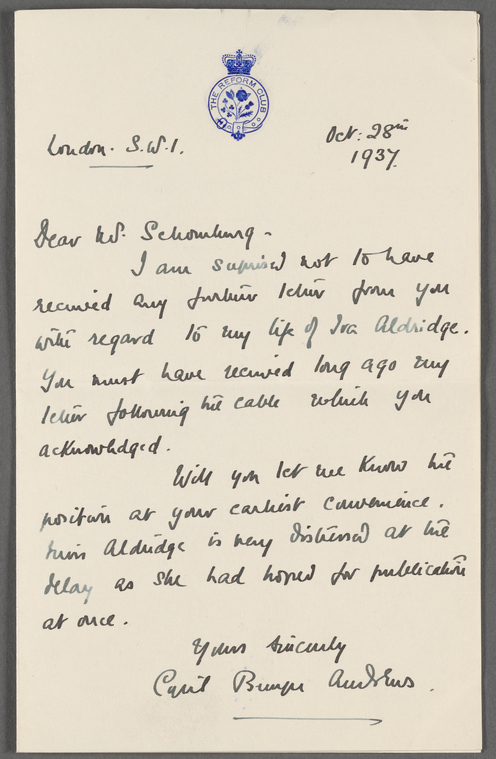 THE REFORM CLUB
London. S.W.1.
Oct: 28th
1937.
Dear Mr. Schomburg -
I am suprised not to have
received any further letter from you
with regard to my life of Ira Aldridge.
You must have received long ago my
letter following the cable which you
acknowledged.
Will you let me know the
position at your earliest convenience.
Miss Aldridge is very distressed at the
delay as she had hoped for publication
at once.
Yours sincerely
Cyril Bruyn Andrews.